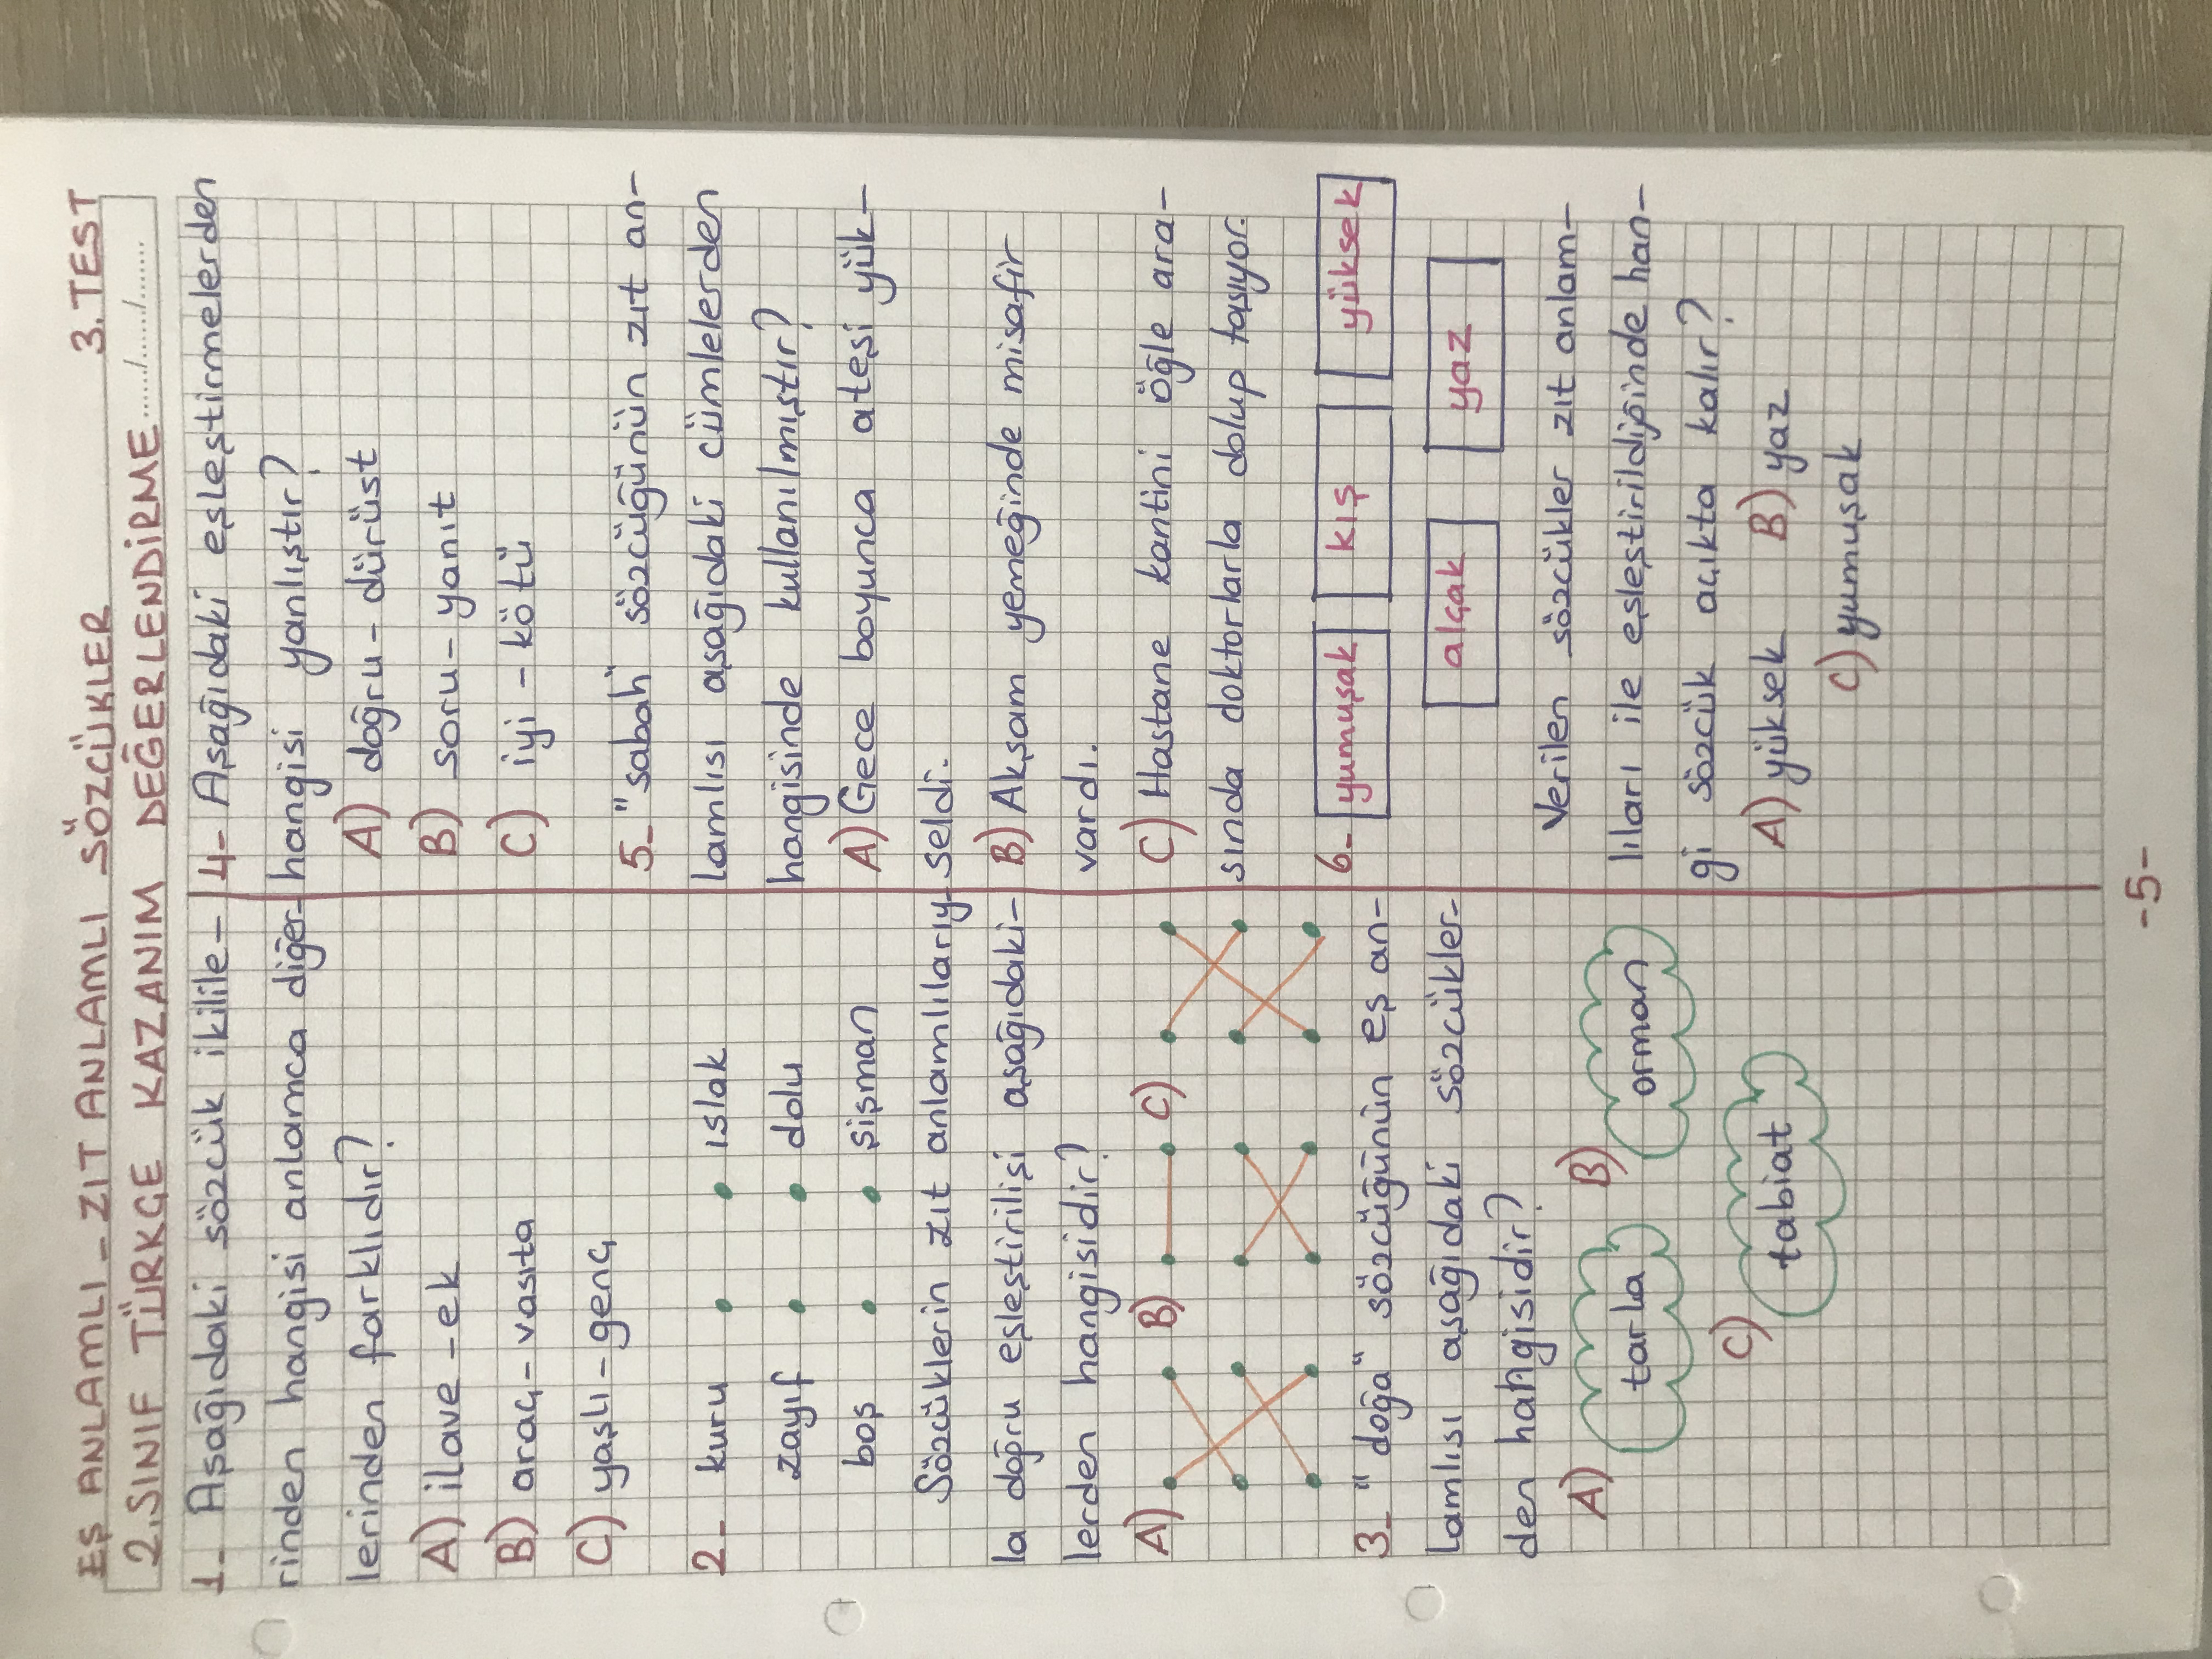 EŞ ANLAMLI - ZIT ANLAMLI SÖZCÜKLER 3. TEST
2. SINIF TÜRKÇE KAZANIM DEĞERLENDİRME ....../....../......
1- Aşağıdaki sözcük ikilile-
rinden hangisi anlamca diğer-
lerinden farklıdır?
A) ilave - ek
B) araç - vasıta
C) yaşlı - genç
2- kuru • • ıslak
zayıf • • dolu
boş • • şişman
Sözcüklerin zıt anlamlılarıy-
la doğru eşleştirilişi aşağıdaki-
lerden hangisidir?
A) B) C)
3- "doğa" sözcüğünün eş an-
lamlısı aşağıdaki sözcükler-
den hangisidir?
A) tarla B) orman
C) tabiat
4- Aşağıdaki eşleştirmelerden
hangisi yanlıştır?
A) doğru - dürüst
B) soru - yanıt
C) iyi - kötü
5- "sabah" sözcüğünün zıt an-
lamlısı aşağıdaki cümlelerden
hangisinde kullanılmıştır?
A) Gece boyunca ateşi yük-
seldi.
B) Akşam yemeğinde misafir
vardı.
C) Hastane kantini öğle ara-
sında doktorlarla dolup taşıyor.
6- yumuşak kış yüksek
alçak yaz
Verilen sözcükler zıt anlam-
lıları ile eşleştirildiğinde han-
gi sözcük açıkta kalır?
A) yüksek B) yaz
C) yumuşak
-5-